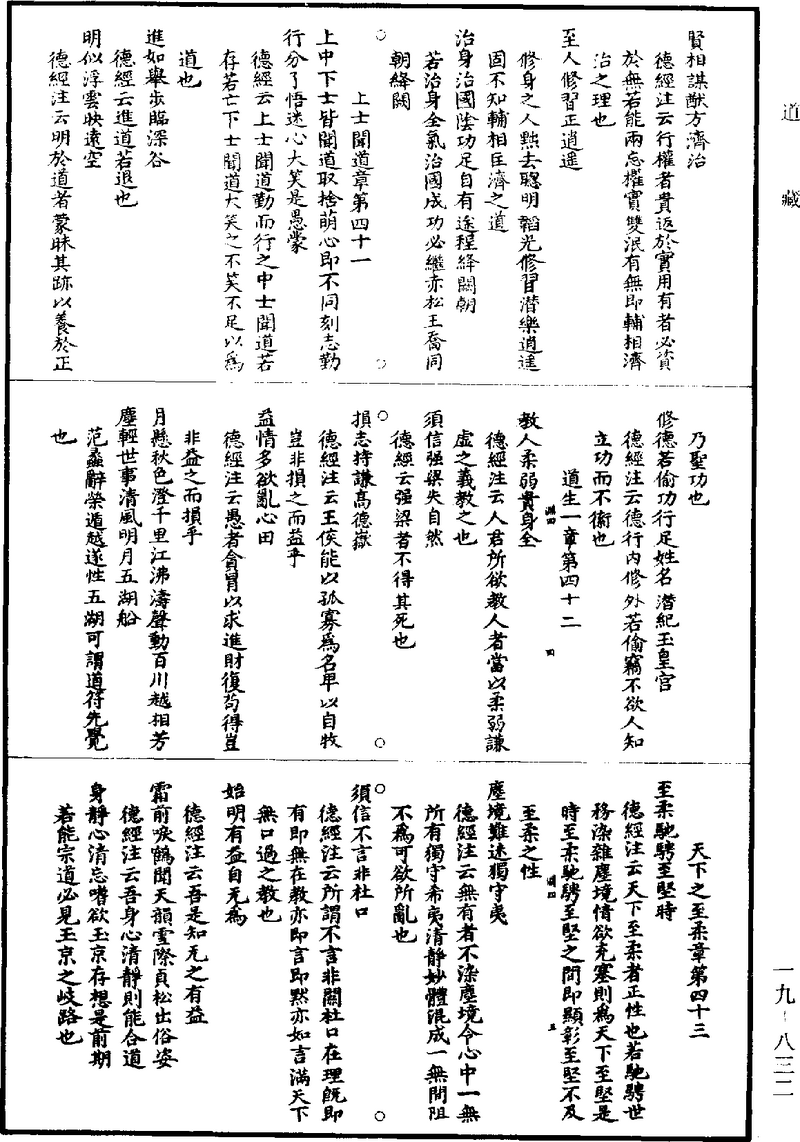 道藏
賢相謀猷方濟治
德經注云行權者貴返於實用有者必資
於無若能兩忘權實雙泯有無即輔相濟
治之理也
至人修習正逍遥
修身之人黜去聰明韜光修習潛樂逍遥
固不知輔相匡濟之道
治身治國陰功足自有途程絳闕朝
若治身全氣治國成功必繼赤松王喬同
朝絳闕
上士聞道章第四十一
上中下士皆聞道取捨萌心即不同刻志勤
行分了悟迷心大笑是愚蒙
德經云上士聞道勤而行之中士聞道若
存若亡下士聞道大笑之不笑不足以為
道也
進如舉步臨深谷
德經云進道若退也
明似浮雲映遠空
德經注云明於道者蒙昧其跡以養於正
乃聖功也
修德若偷功行足姓名潛紀玉皇宮
德經注云德行內修外若偷竊不欲人知
立功而不衒也
道生一章第四十二
教人柔弱貴身全
德經注云人君所欲教人者當以柔弱謙
虛之義教之也
須信强梁失自然
德經云强梁者不得其死也
損志持謙高德嶽
德經注云王侯能以孤寡為名卑以自牧
豈非損之而益乎
益情多欲亂心田
德經注云愚者貪冒以求進財復苟得豈
非益之而損乎
月懸秋色澄千里江沸濤聲動百川越相芳
塵輕世事清風明月五湖船
范蠡辭榮遁越遂性五湖可謂道符先覺
也
天下之至柔章第四十三
至柔馳騁至堅時
德經注云天下至柔者正性也若馳騁世
務染雜塵境情欲充塞則為天下至堅是
時至柔馳騁至堅之間即顯彰至堅不及
至柔之性
塵境難迷獨守夷
德經注云無有者不染塵境令心中一無
所有獨守希夷清靜妙體混成一無間阻
不為可欲所亂也
須信不言非杜口
德經注云所謂不言非關杜口在理既即
有即無在教亦即言即默亦如言滿天下
無口過之教也
始明有益自无為
德經注云吾是知无之有益
霜前唳鶴聞天韻雪際貞松出俗姿
德經注云吾身心清靜則能合道
身靜心清忘嗜欲玉京存想是前期
若能宗道必見玉京之歧路也
一九－八三二